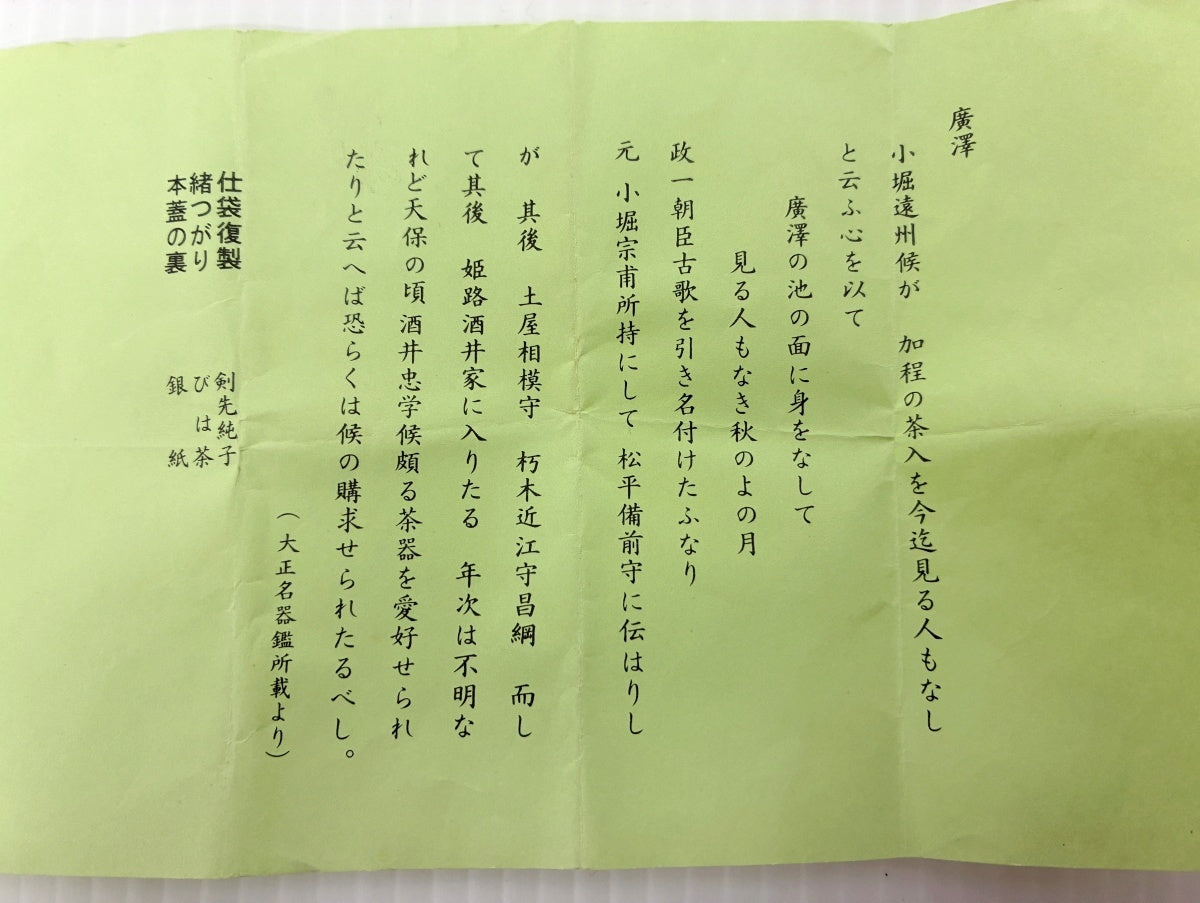 廣澤
小堀遠州候が 加程の茶入を今迄見る人もなし
と云ふ心を以て
廣澤の池の面に身をなして
見る人もなき秋のよの月
政一朝臣古歌を引き名付けたふなり
元 小堀宗甫所持にして 松平備前守に伝はりし
が 其後 土屋相模守 朽木近江守昌綱 而し
て其後 姫路酒井家に入りたる 年次は不明な
れど天保の頃酒井忠学候頗る茶器を愛好せられ
たりと云へば恐らくは候の購求せられたるべし。
（大正名器鑑所載より）
仕袋復製 剣先純子
緒つがり びは茶
本蓋の裏 銀紙